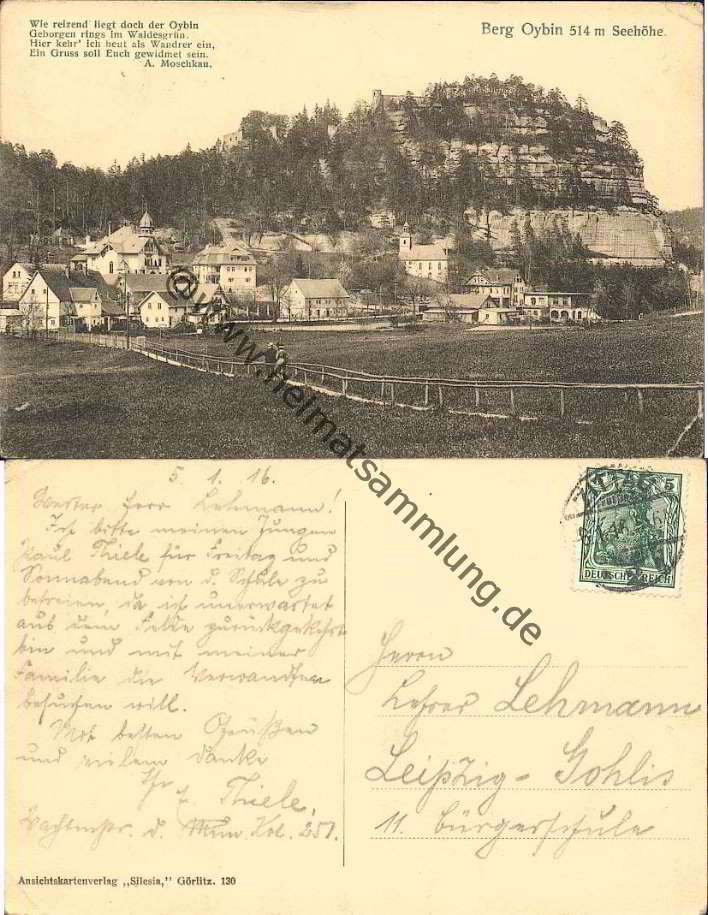 Wie reizend liegt doch der Oybin
Geborgen rings im Waldesgrün.
Hier kehr' ich heut als Wandrer ein,
Ein Gruss soll Euch gewidmet sein.
A. Moschkau.
Berg Oybin 514 m Seehöhe.
@ www.heimatsammlung.de
5. 1. 16.
Werter Herr Lehmann!
Ich bitte meinen Jungen
Paul Thiele für Freitag und
Sonnabend von d. Schule zu
befreien, da ich unerwartet
aus dem Felde zurückgekehrt
bin und mit meiner
Familie die Verwandten
besuchen will.
Mit besten Grüßen
und vielem Danke
Ihr
E. Thiele,
Wachtmstr. d. Mun. Kol. 251.
5
DEUTSCHES REICH
Herrn
Lehrer Lehmann
Leipzig-Gohlis
11. Bürgerschule
Ansichtskartenverlag „Silesia," Görlitz. 130